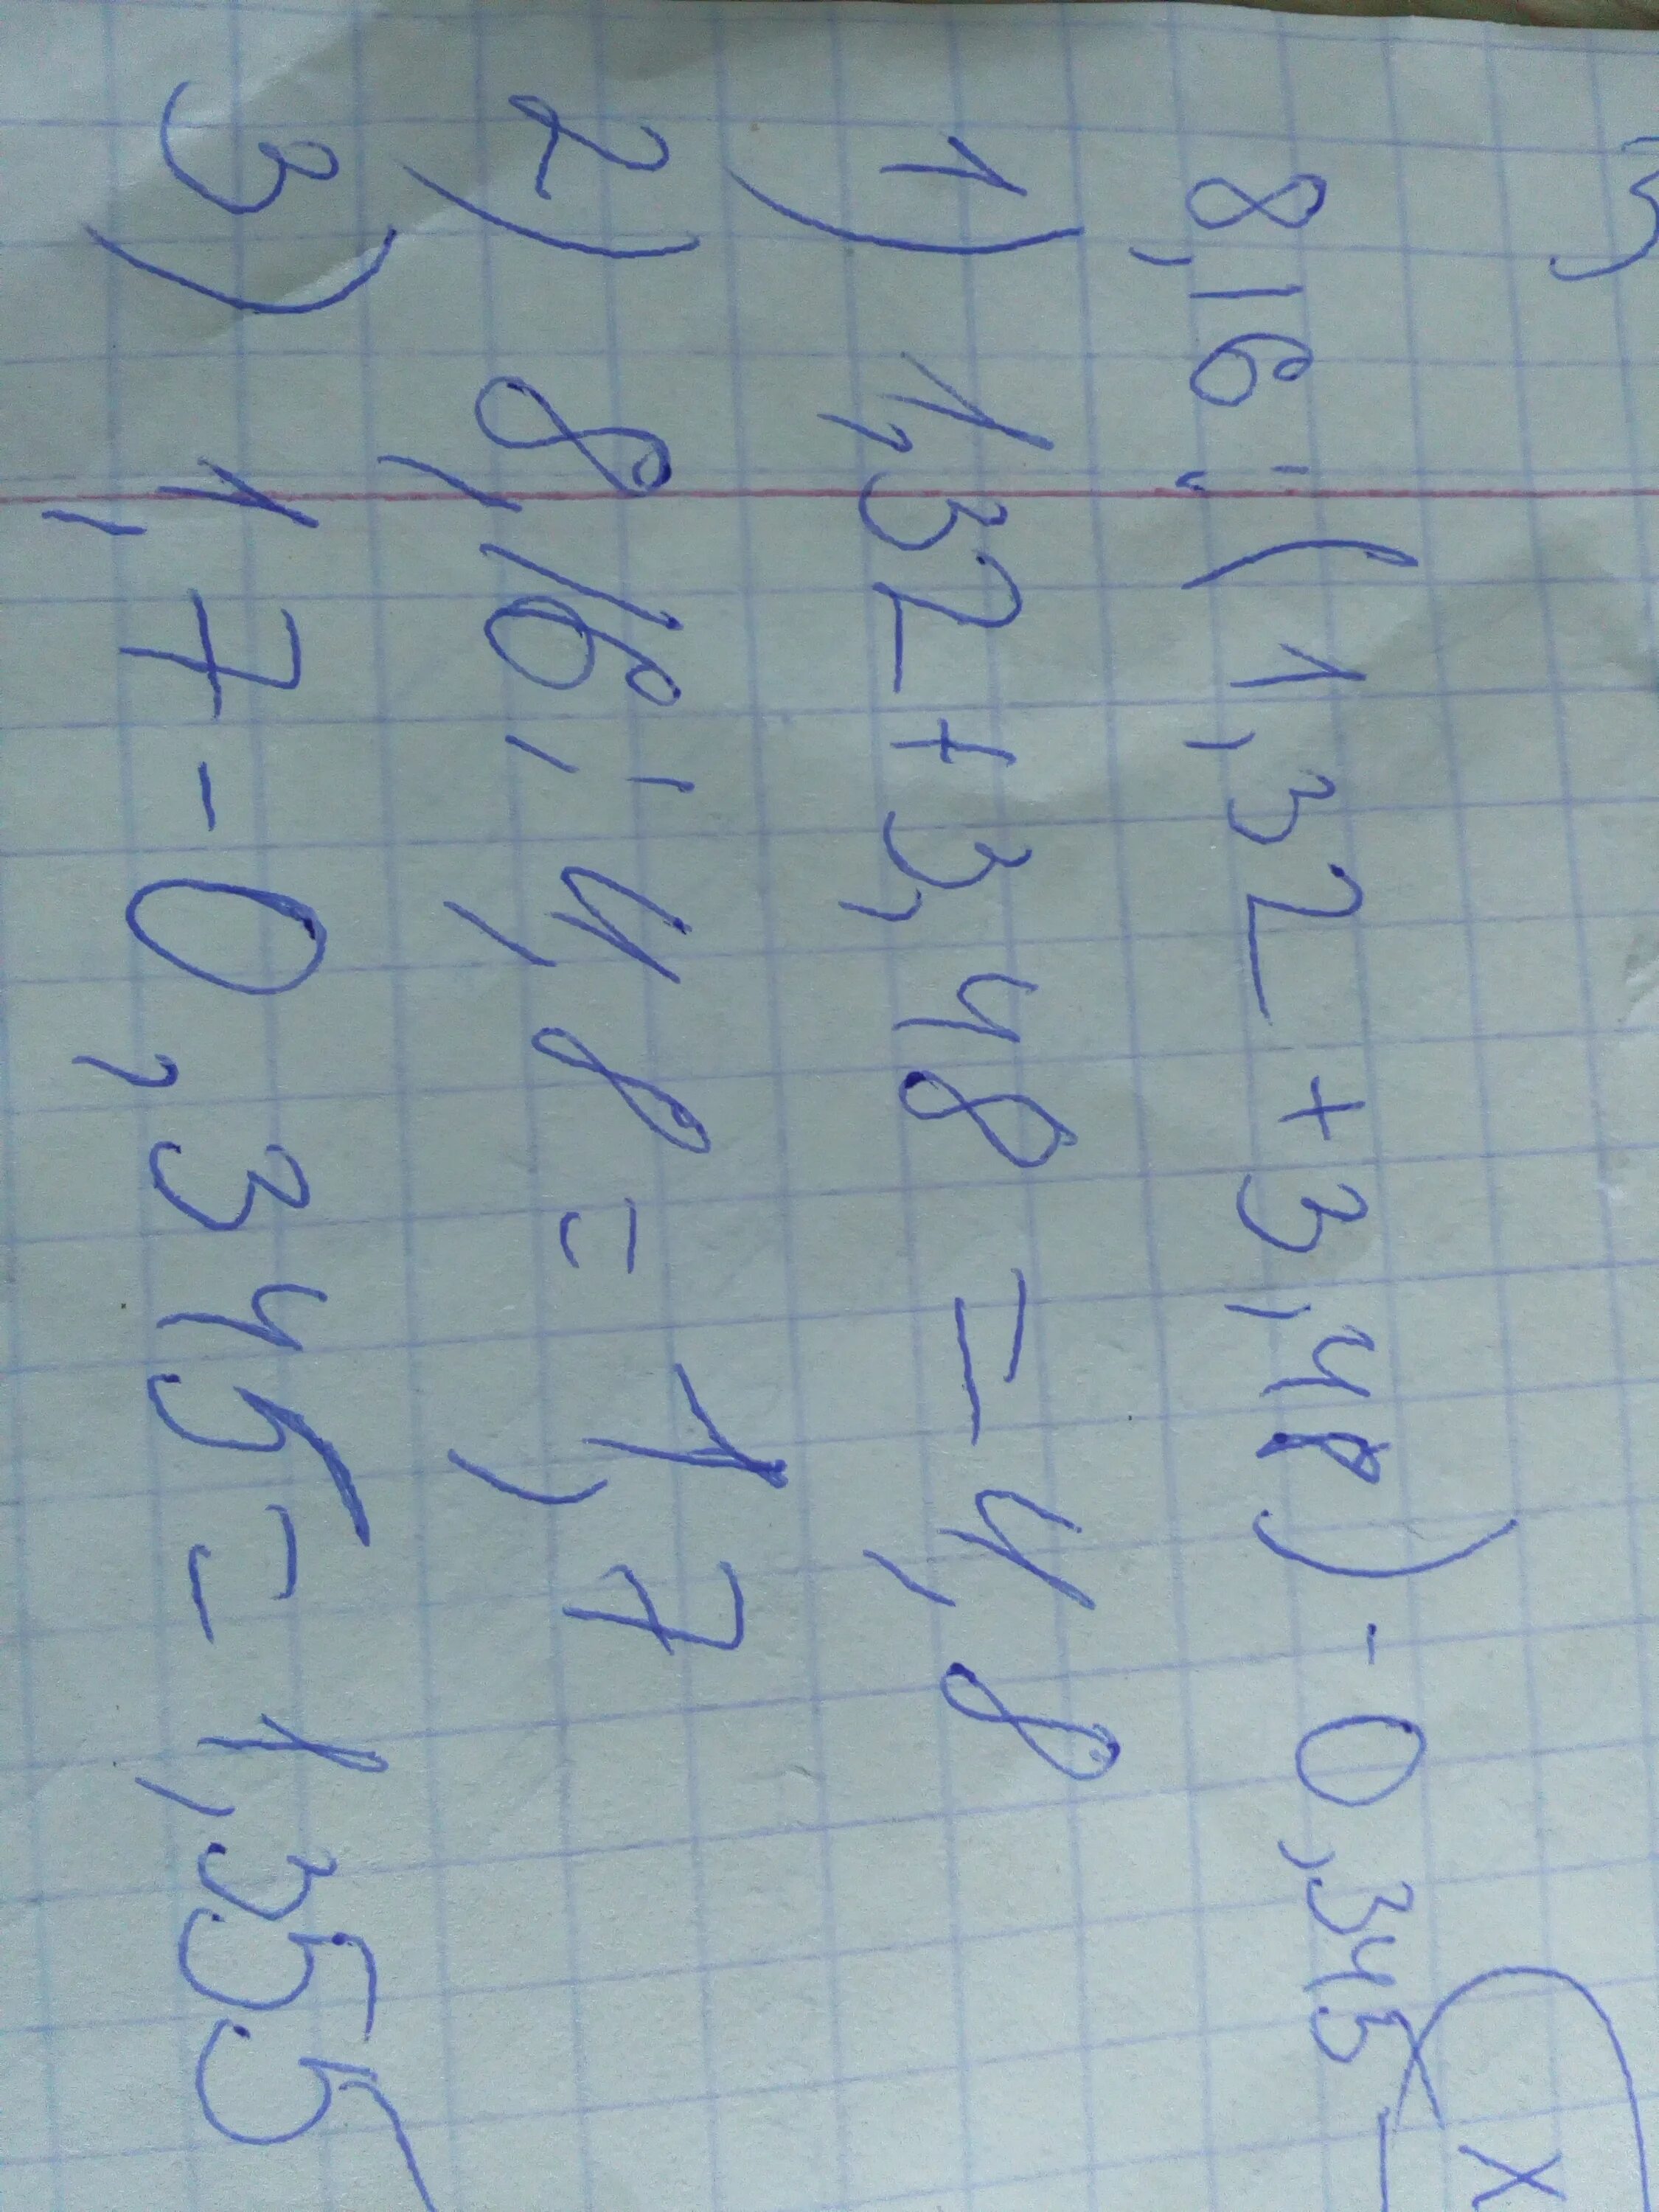 8,16 : (1,32 + 3,48) - 0,345
1) 1,32 + 3,48 = 4,8
2) 8,16 : 4,8 = 1,7
3) 1,7 - 0,345 = 1,355